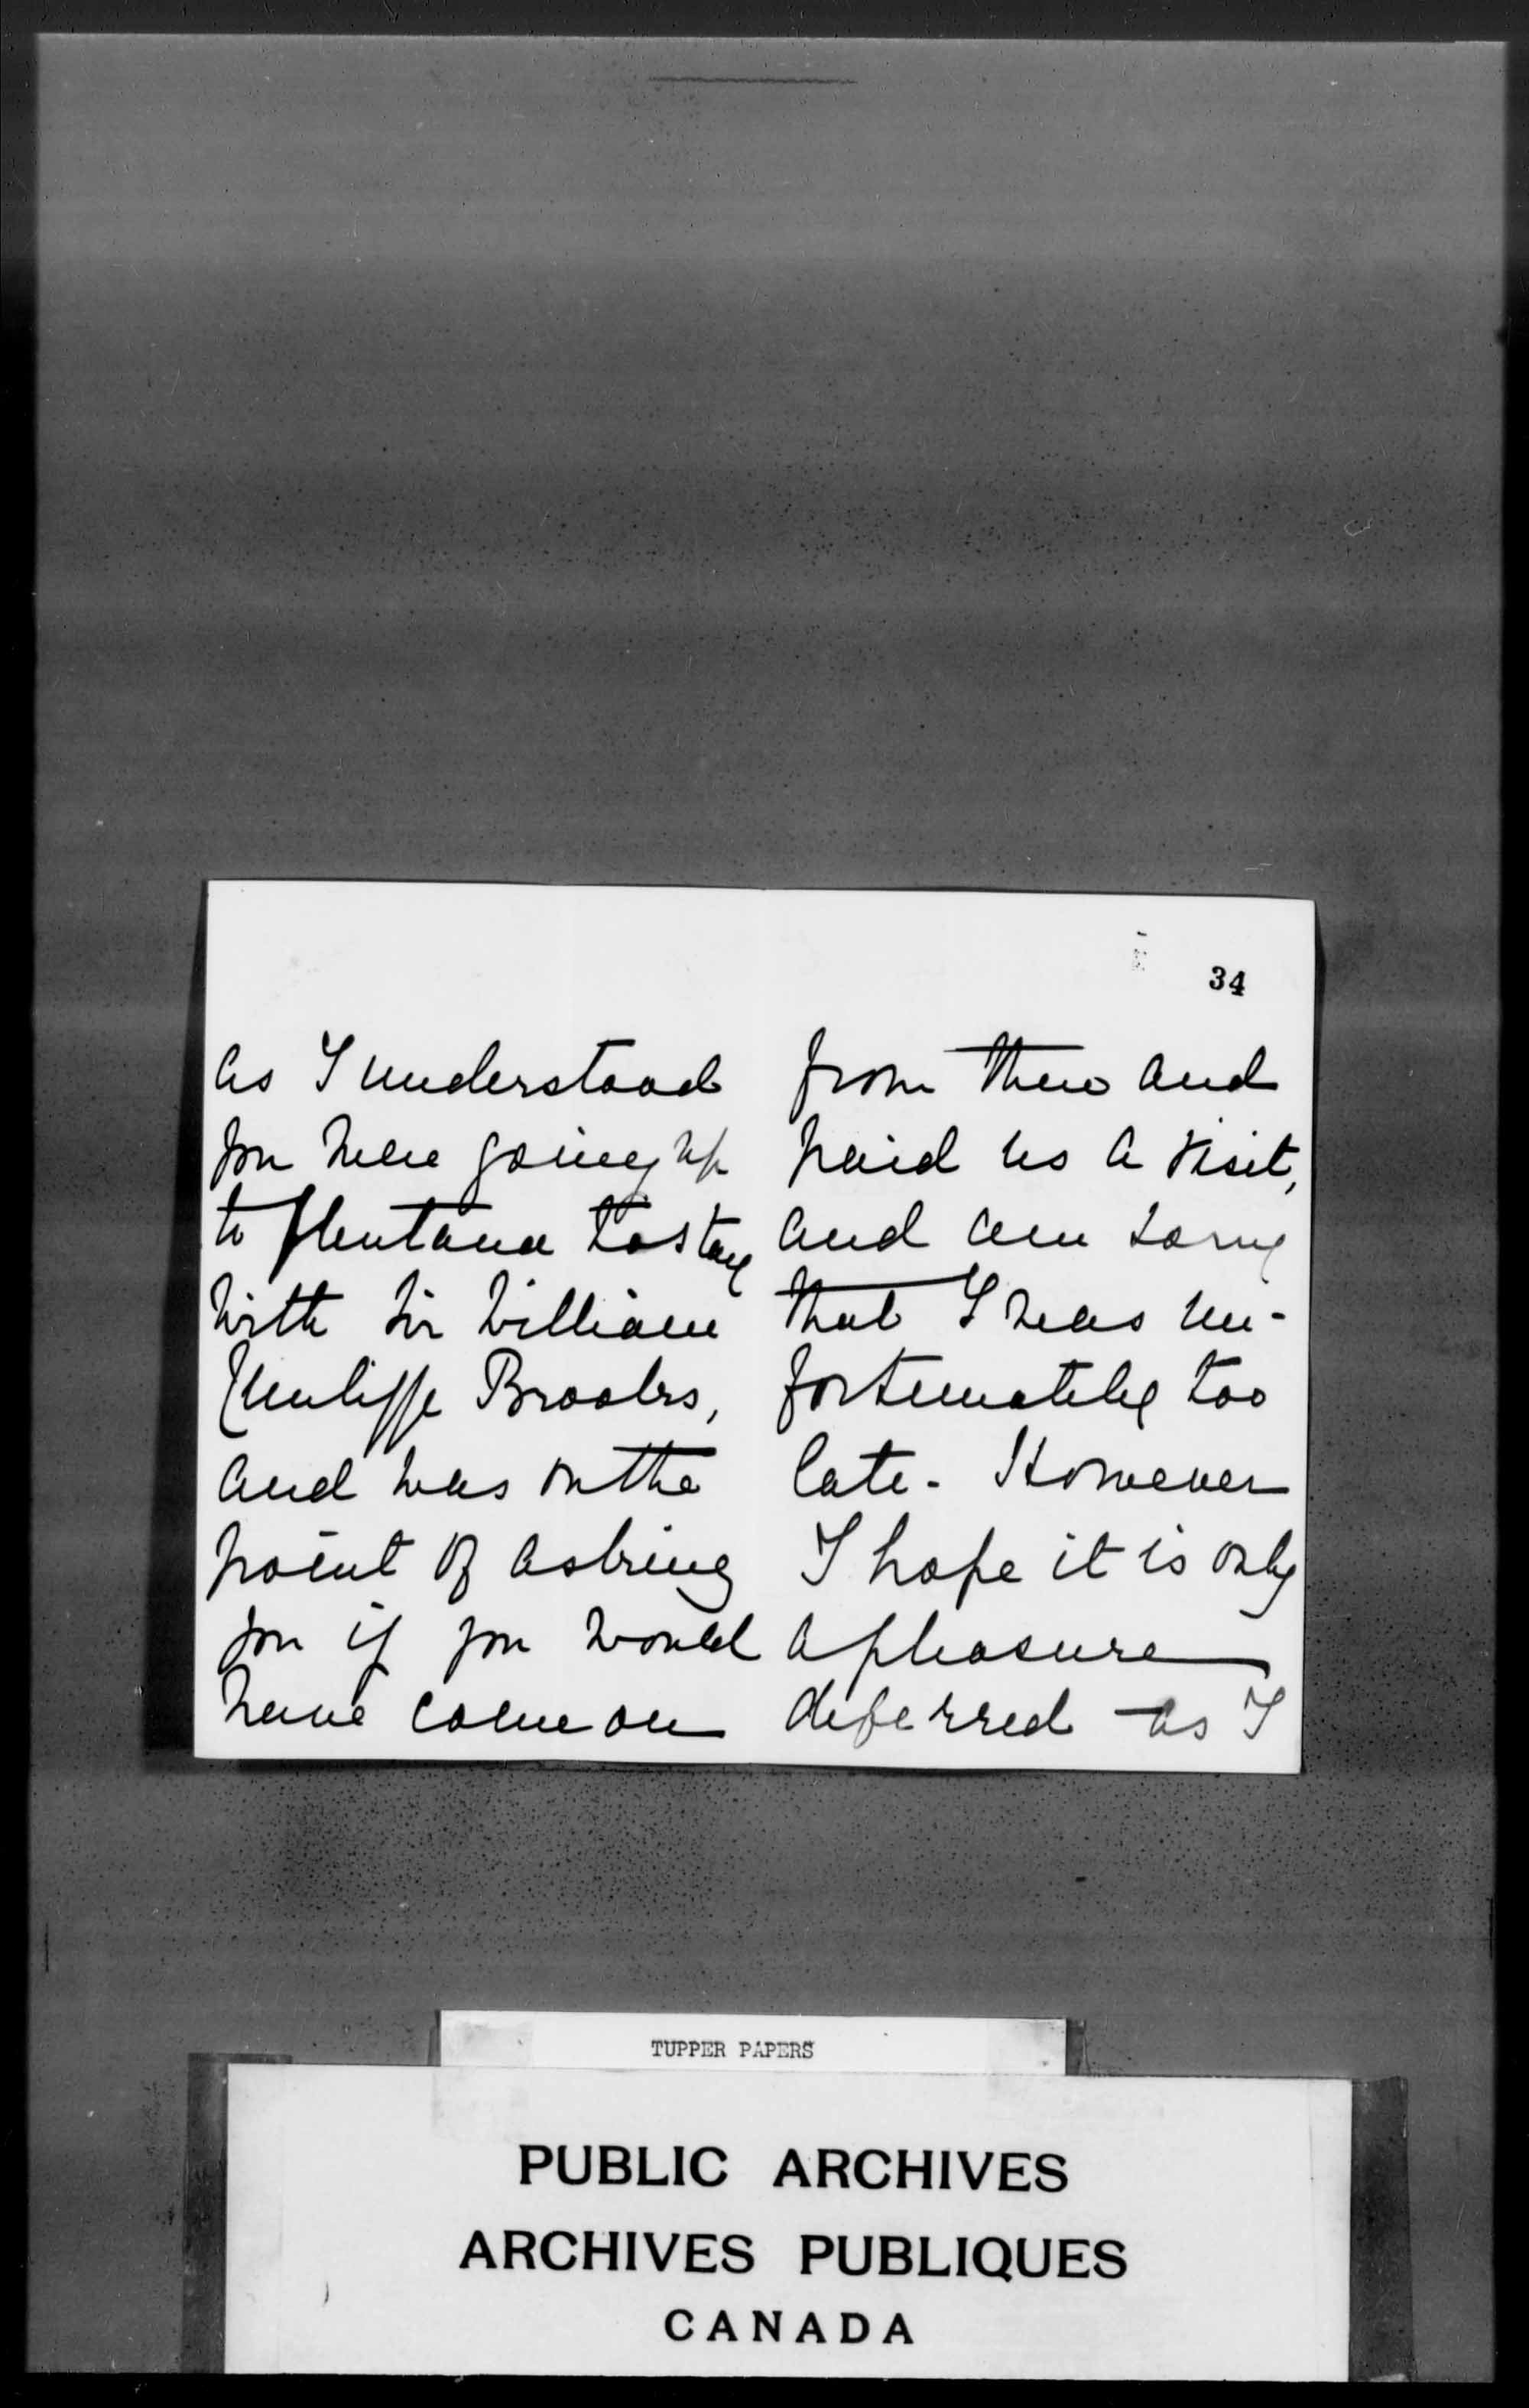 34
as I understood
you were going up
to Glentana to stay
with Sir William
Cunliffe Brooks,
and was on the
point of asking
you if you would
have come on
from there and
paid us a visit,
and am sorry
that I was un-
fortunately too
late. However
I hope it is only
a pleasure
deferred as I
TUPPER PAPERS
PUBLIC ARCHIVES
ARCHIVES PUBLIQUES
CANADA